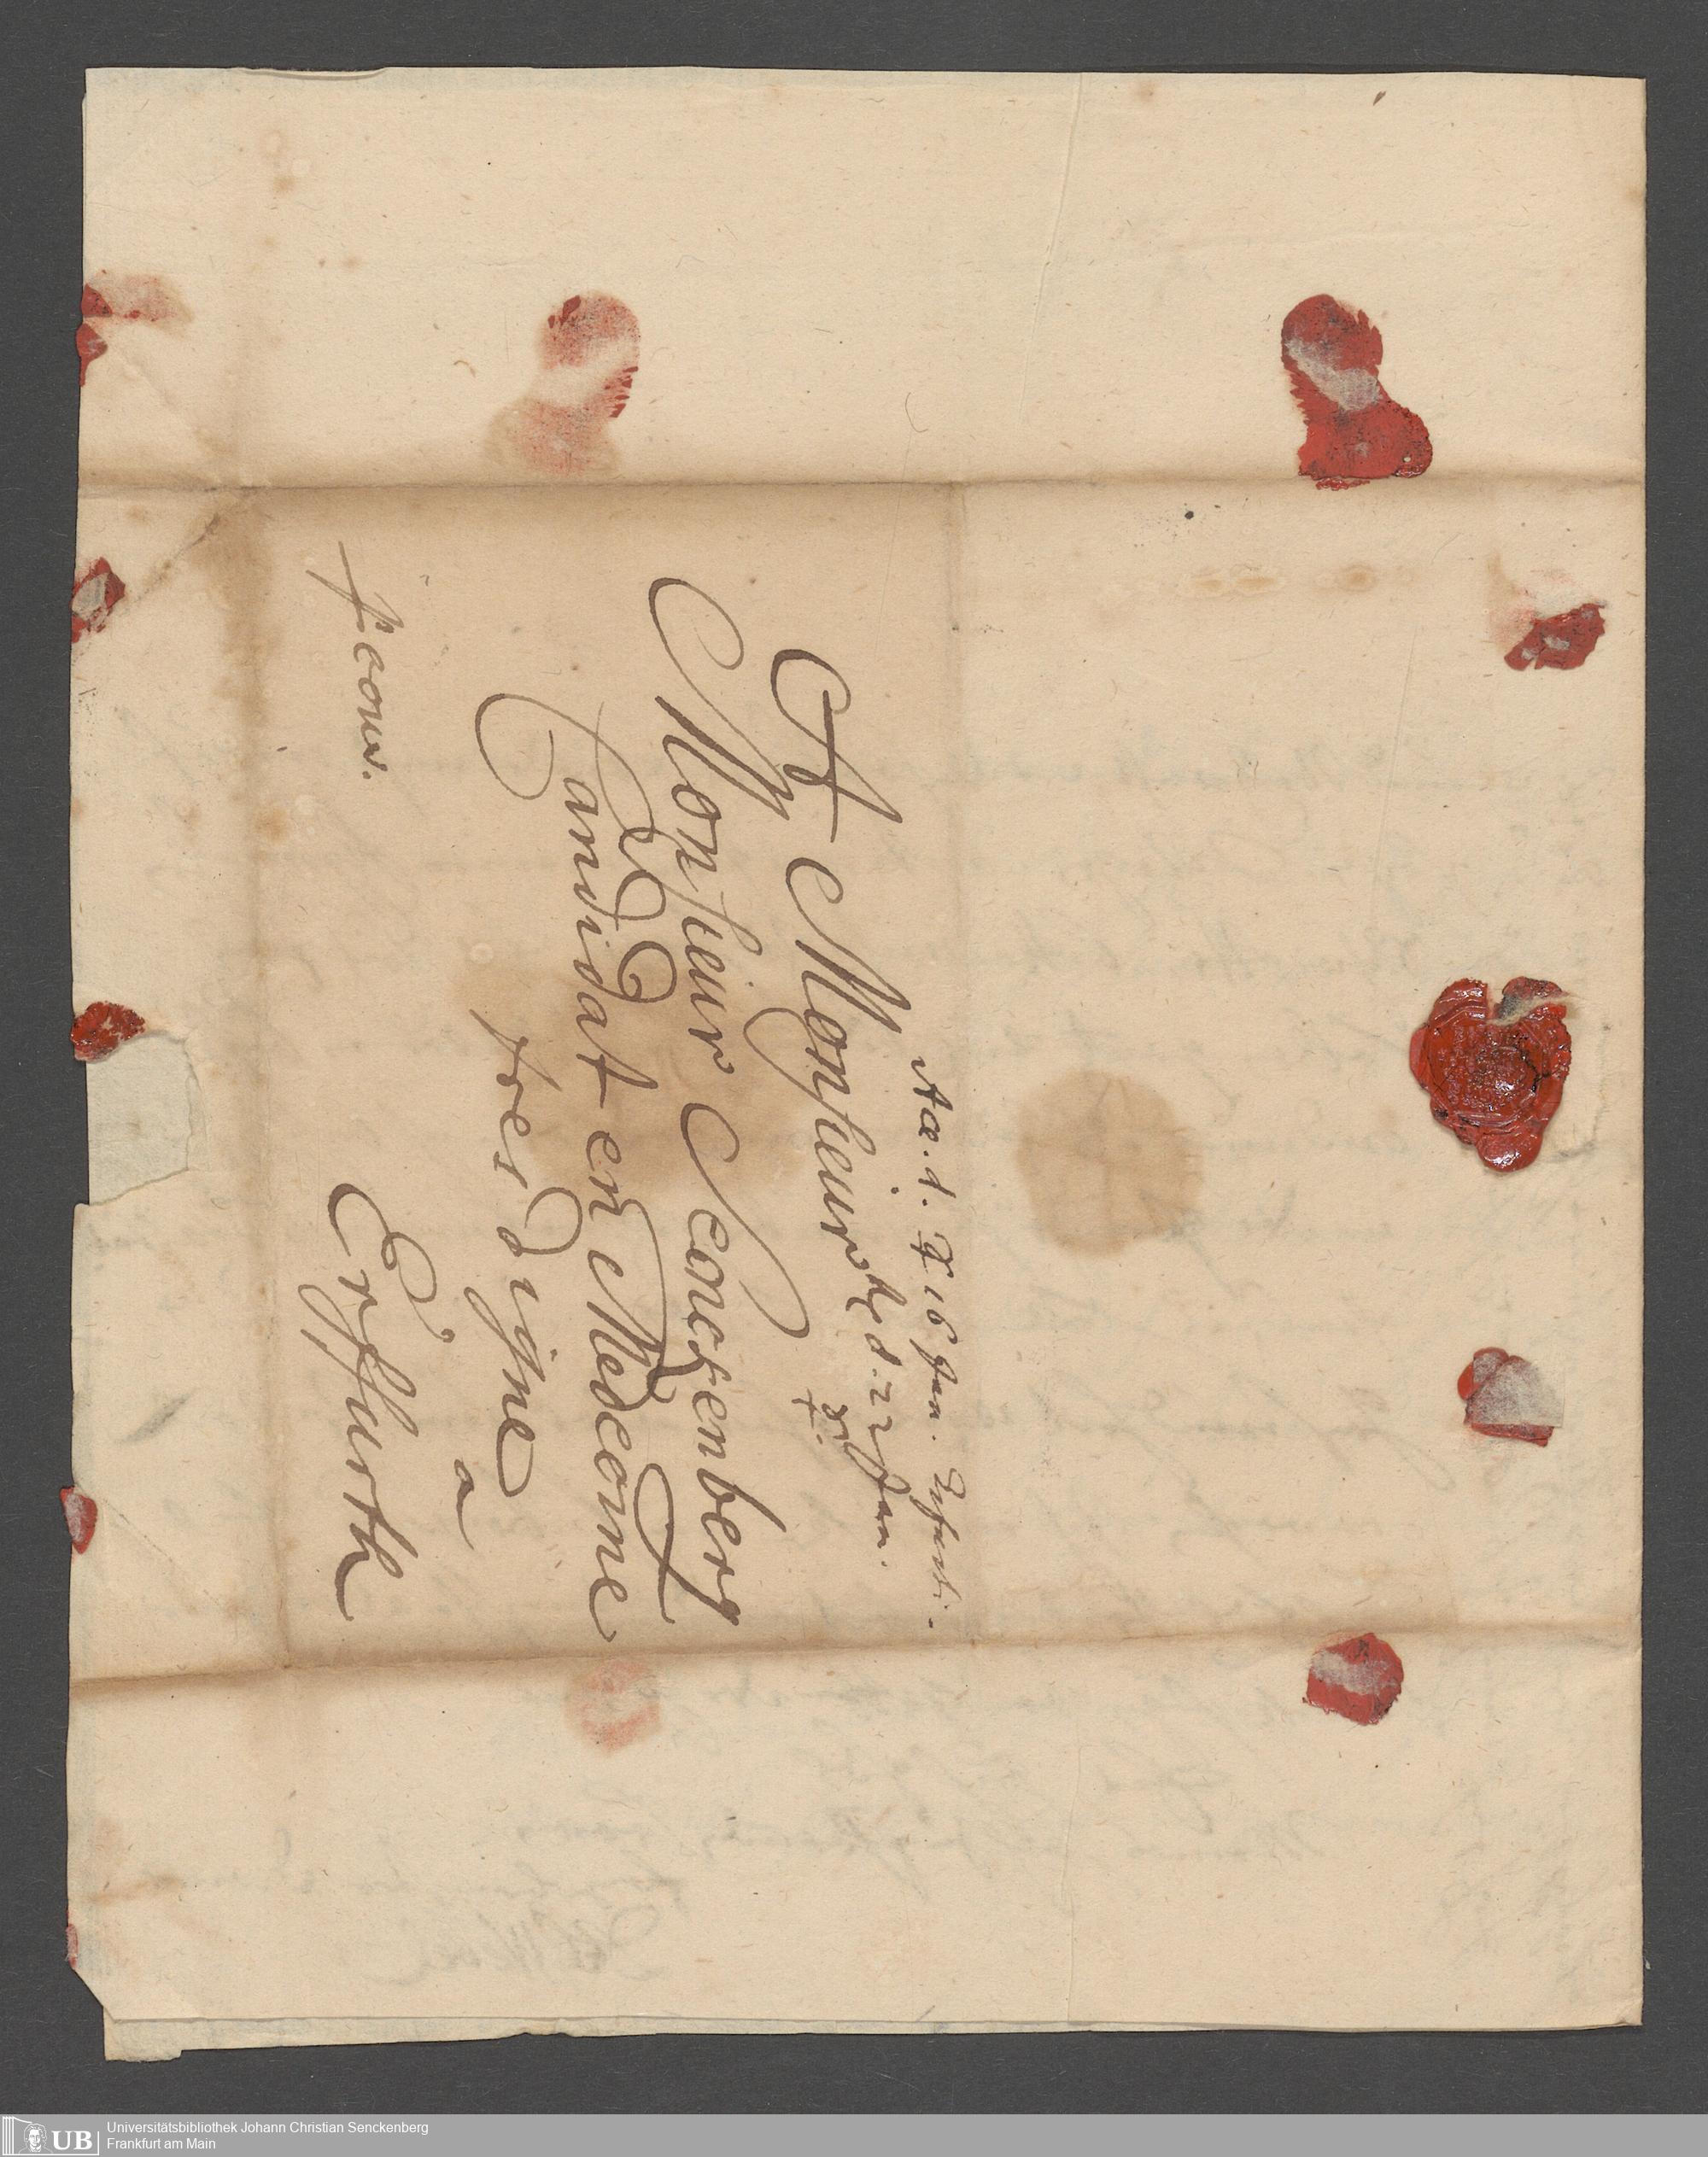 Acc. d. 16 Jan.
A Monsieur
d. 22 Jan.
Monsieur Senckenberg
Candidat en Medecine
tres digne
a
franco.
Erffurth
UB
Universitätsbibliothek Johann Christian Senckenberg
Frankfurt am Main